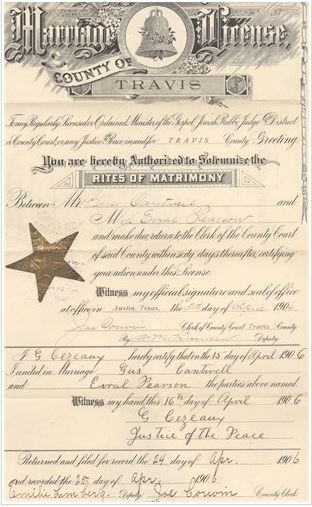 Marriage License,
COUNTY OF
TRAVIS
To any Regularly Licensed or Ordained Minister of the Gospel, Jewish Rabbi, Judge of District
or County Court, or any Justice of Peace in and for TRAVIS County, Greeting.
You are hereby Authorized to Solemnize the
RITES OF MATRIMONY
Between Mr. Gus Cantwell and
M Evral Pearson
and make due return to the Clerk of the County Court
of said County within sixty days thereafter, certifying
your action under this License.
Witness my official signature and seal of office
at office in Austin, Texas, the day of April 190
Joe Corwin Clerk of County Court Travis County
By Deputy
J G Cezeaux hereby certify that on the 15 day of April 1906
I united in Marriage Gus Cantwell
and Evral Pearson the parties above named.
Witness my hand, this 16th day of April 1906
G Cezeaux
Justice of the Peace
Returned and filed for record the 24 day of Apr. 1906
and recorded the 25 day of Apr 1906
Deputy Joe Corwin County Clerk